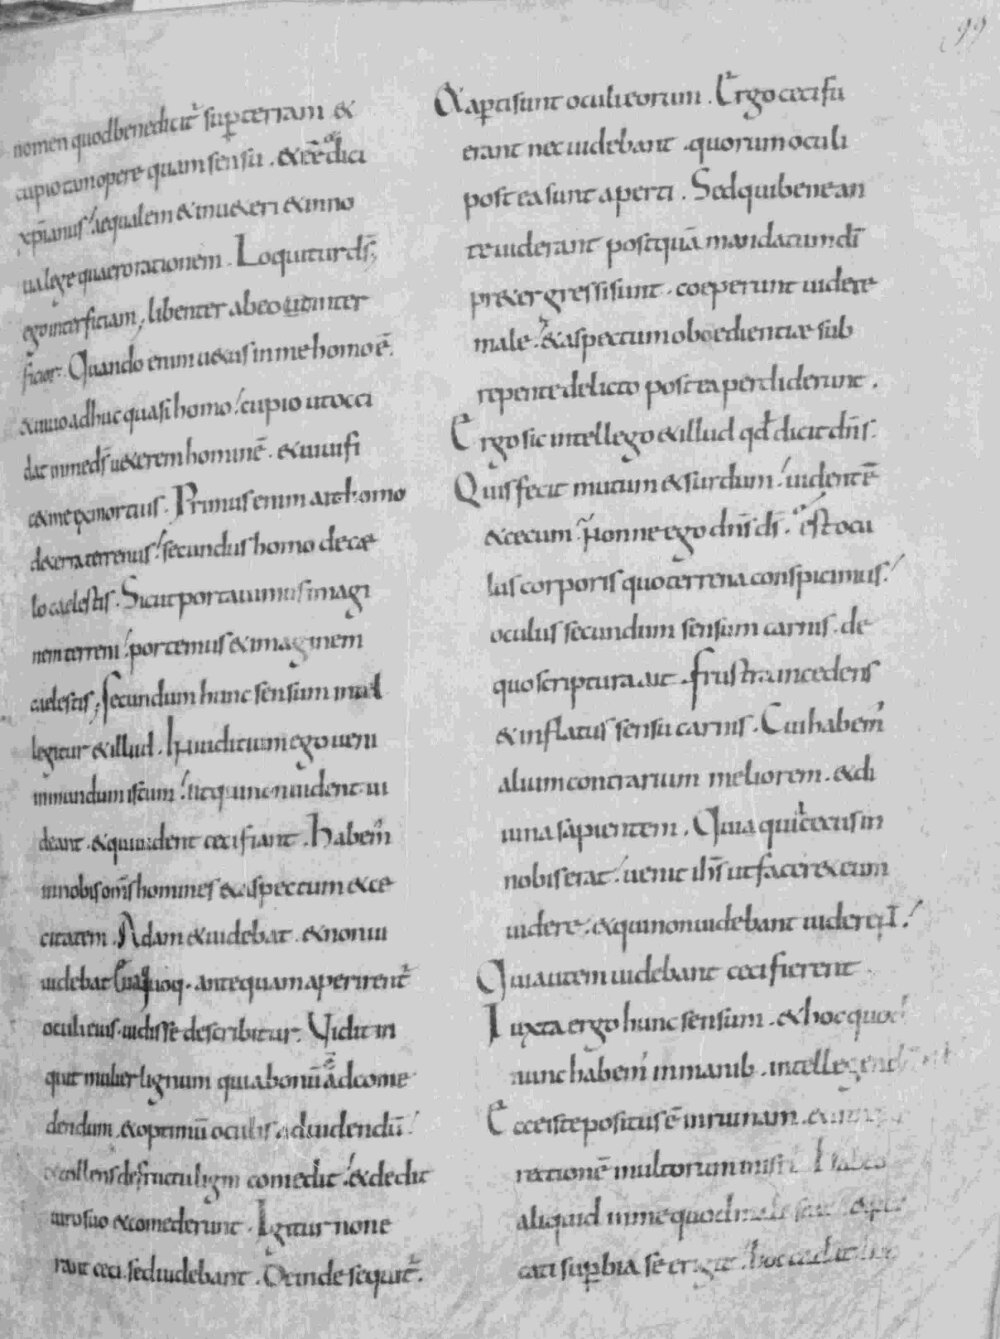 99
nomen quod benedicit᷑ sup̱ terram &
cupio tam opere quam sensu . & cē dici
xp̄ianus / aequalem & inueteri & inno
ua lege quaero rationem . Loquitur ds̄;
ego interficiam, libenter ab eo ut inter
ficiar. Quando enim uetus in me homo ē.
& uiuo adhuc quasi homo / cupio ut occi
dat in me ds̄ ueterem hominē . & uiuifi
cet me ex mortuis . Primus enim ait homo
de terra terrenus / secundus homo de cae
lo caelestis . Sicut portauimus imagi
nem terreni / portemus & imaginem
caelestis, secundum hunc sensum intel
legitur & illud . In iudicium ego ueni
in mundum istum / ut qui non uident ui
deant . & qui uident ceci fiant . Habem̄
in nobis om̄s homines & aspectum & ce
citatem . Adam & uidebat . & non ui
debat Eua quoq . antequam aperirent᷑
oculi eius . uidisse describitur . Vidit in
quit mulier lignum quia bonū ē ad come
dendum . & optimū oculis ad uidendū /
& tollens de fructu ligni comedit / & dedit
uiro suo & comederunt . Igitur non e
rant ceci . sed uidebant . Deinde sequit᷑ .
Et aperti sunt oculi eorum . Ergo ceci fu
erant nec uidebant . quorum oculi
postea sunt aperti . Sed qui bene an
te uiderant postquā mandatum dī
pretergressi sunt . coeperunt uidere
male / & aspectum oboedientiae sub
repente delicto postea perdiderunt .
Ergo sic intellego & illud qd̄ dicit dn̄s .
Quis fecit mutum & surdum / uidentē
& cecum . nonne ego dn̄s ds̄ . est ocu
lus corporis quo terrena conspicimus /
oculus secundum sensum carnis . de
quo scriptura ait . frustra incedens
& inflatus sensu carnis . Cui habem̄
alium contrarium meliorem . & di
uina sapientem . Quia qui cecus in
nobis erat / uenit ih̄s ut faceret eum
uidere . & qui non uidebant uiderent /
Qui autem uidebant ceci fierent .
Iuxta ergo hunc sensum . & hoc quod
nunc habem̄ in manib . intellegend
Ecce iste positus ē in ruinam . &
rectionē multorum in isrl . Habeo
aliquid in me quod male
cati sup̱bia se erigit / hoc cadit